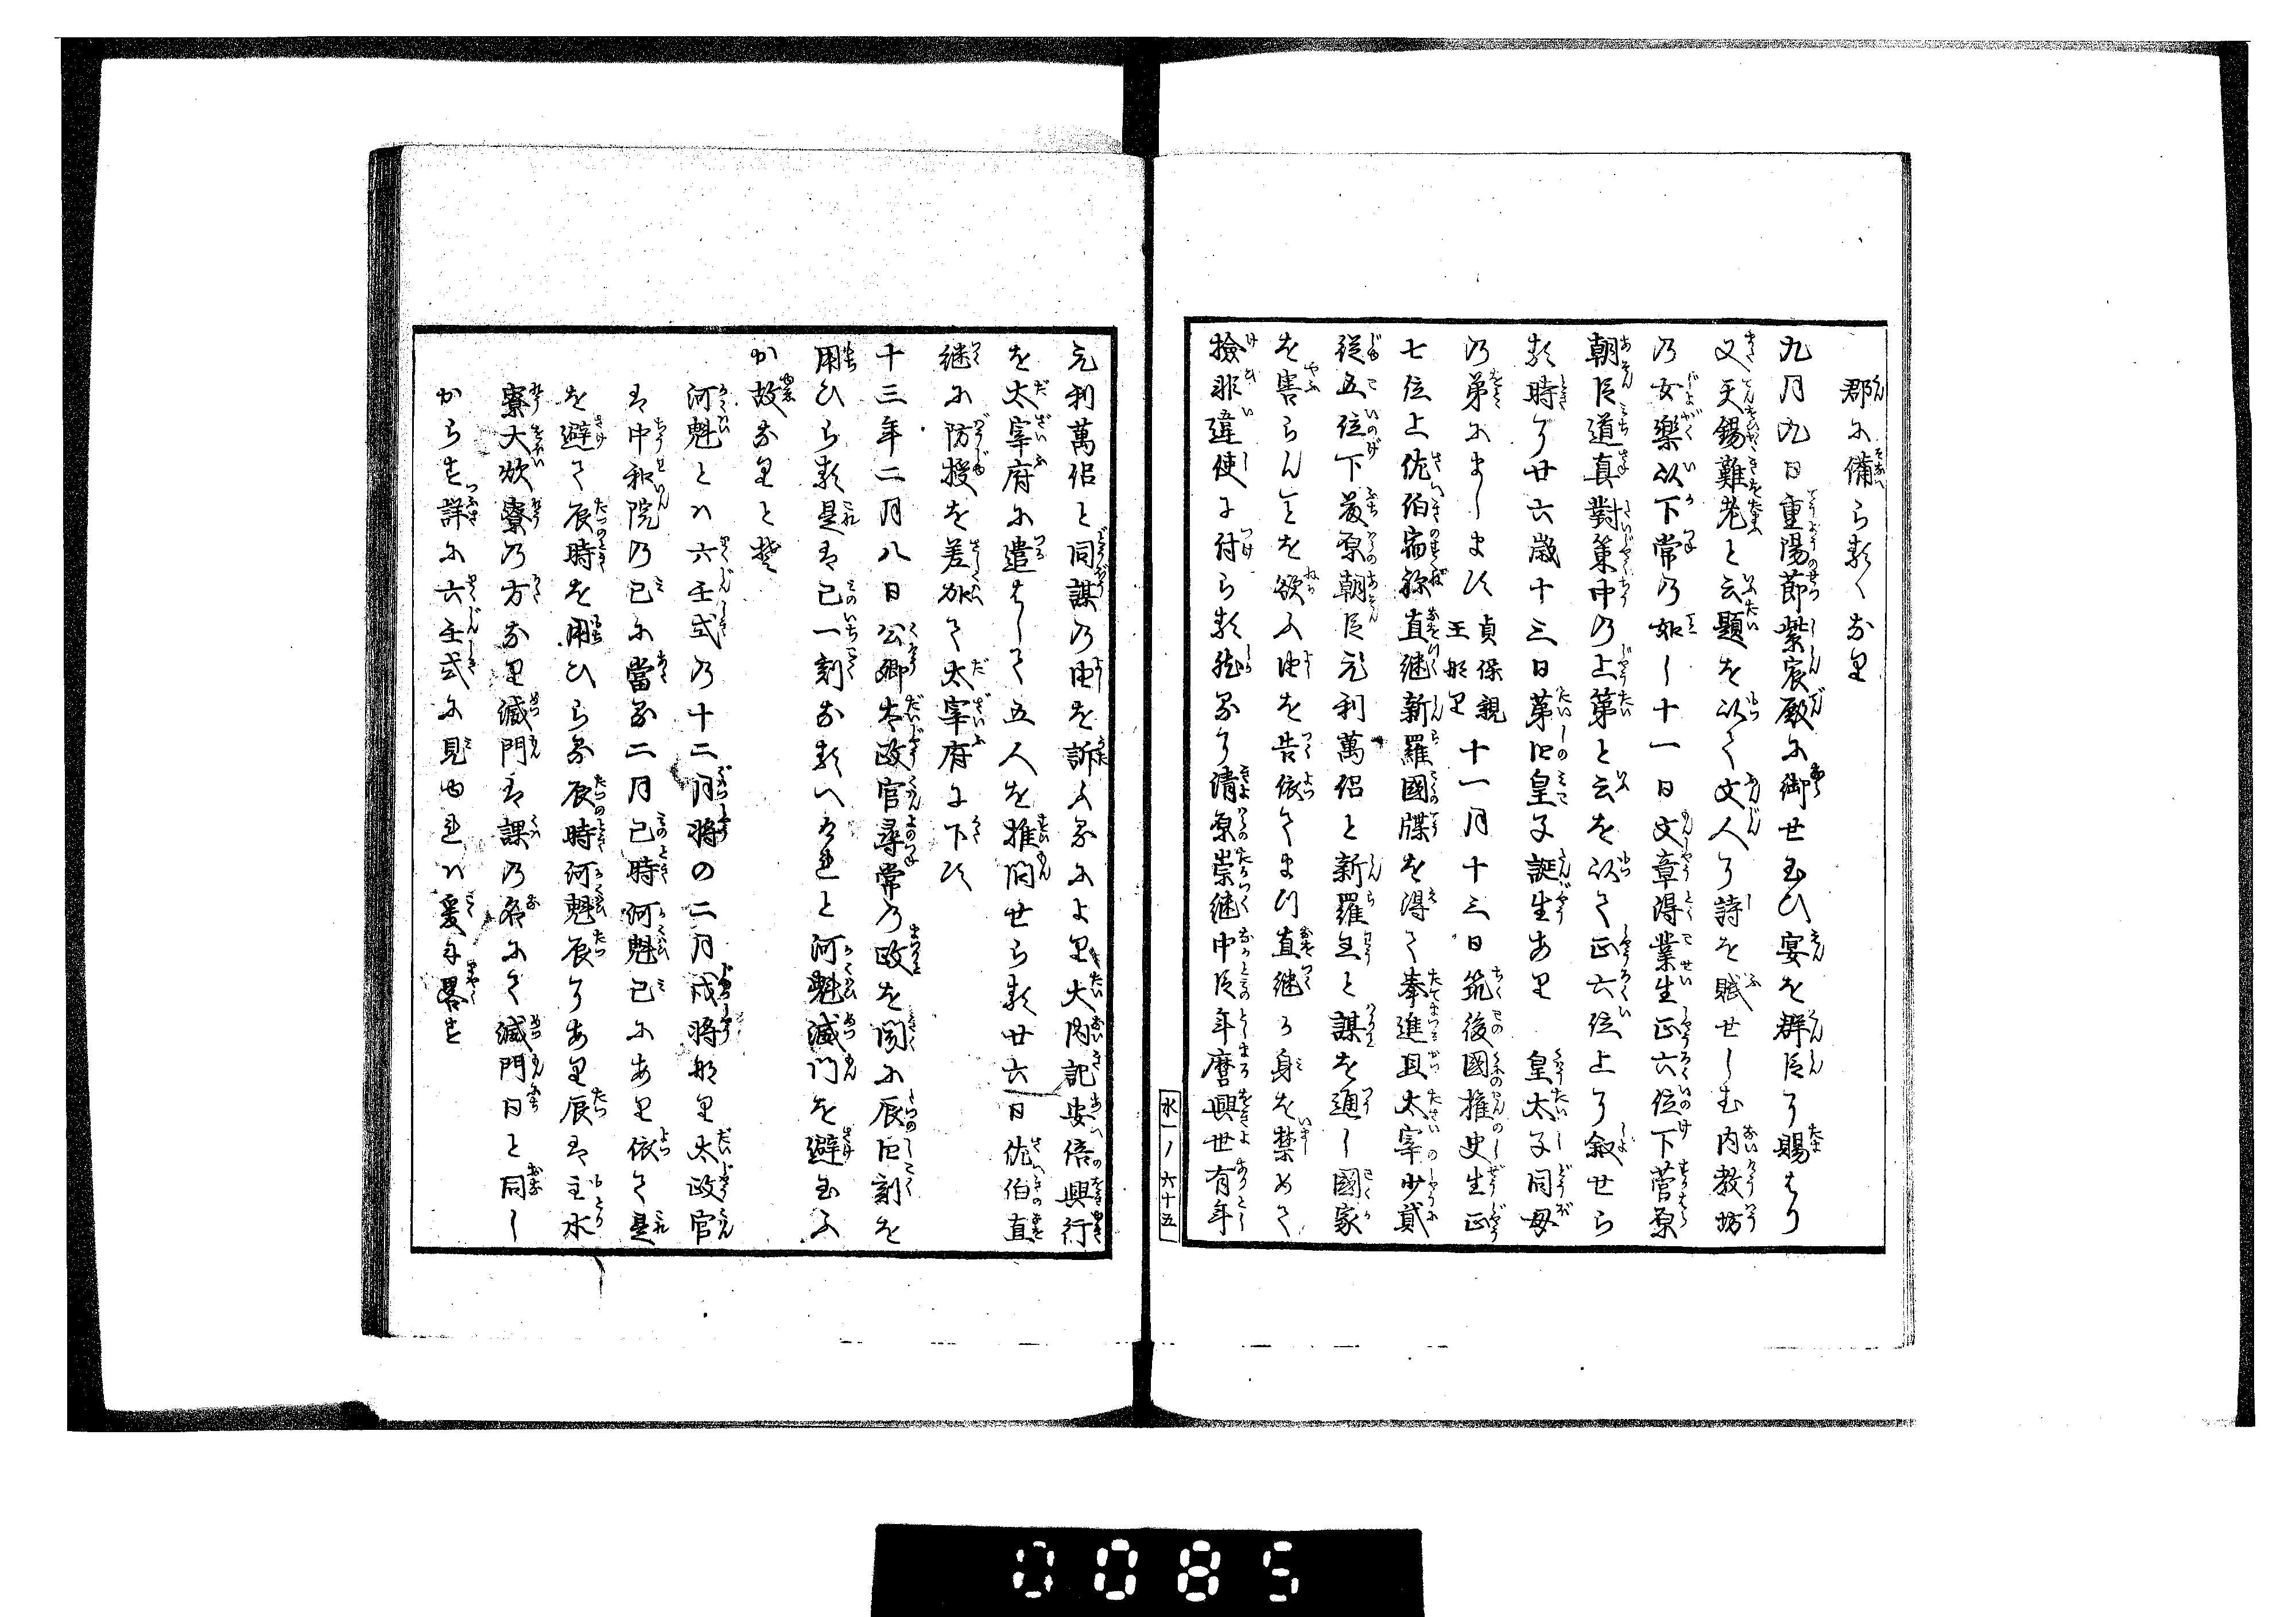 郡に備らるゝなり
九月九日重陽節紫宸殿に御せ玉ひ宴を群臣に賜はり
又天錫難老と云題を以て文人に詩を賦せしむ内教坊
の女樂以下常の如し十一日文章得業生正六位下菅原
朝臣道真對策中の上第と云を以て正六位上に叙せら
る時に廿六歳十三日第四皇子誕生あり　皇太子同母
の弟にまします貞保親王なり十一月十三日筑後國権史生正
七位上佐伯宿祢直継新羅國牒を得て奉進且太宰少貳
従五位下藤原朝臣元利萬侶と新羅王と謀を通し國家
を害らんことを欲ふ由を告依てまづ直継か身を禁めて
撿非違使に付らる然るに清原崇継中臣年麿興世有年
元利萬侶と同謀の由を訴ふるにより大内記安倍興行
を太宰府に遣はして五人を推問せらる廿六日佐伯直
継に防援を差加て太宰府に下す
十三年二月八日公卿太政官尋常の政を聞に辰四刻を
用ひらる是は巳一刻なるへけれと河魁滅門を避玉ふ
か故なりと楚
河魁とハ六壬式の十二月将の二月戌将なり太政官
は中和院の巳に當る二月巳時河魁巳にあり依て是
を避て辰時を用ひらる辰時河魁辰にあり辰は主水
寮大炊寮の方なり滅門は課の名にて滅門日と同し
からす詳に六壬式に見ゆれハ爰に畧す
水一ノ六十五
0085